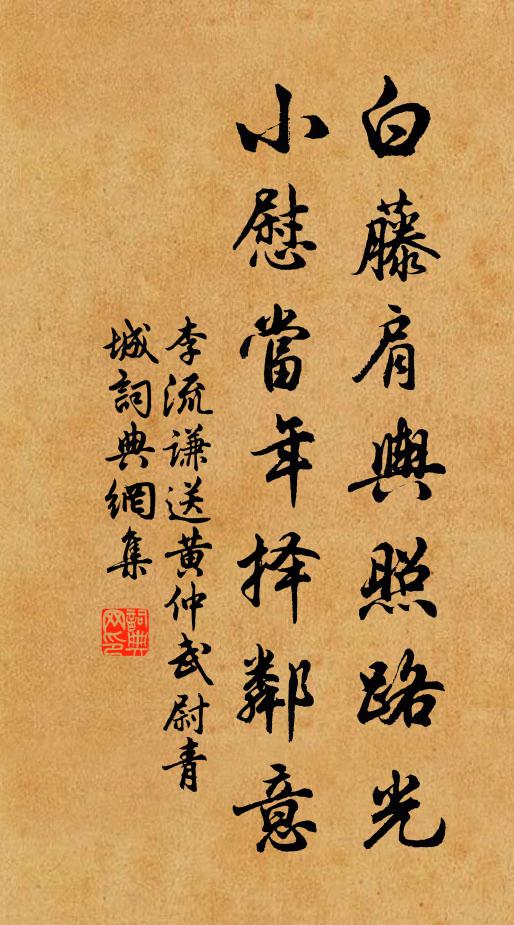 白藤肩輿照路光
小慰當年择鄰意
李流谦送黄仲武尉青
城詞典網集
詞典
网印